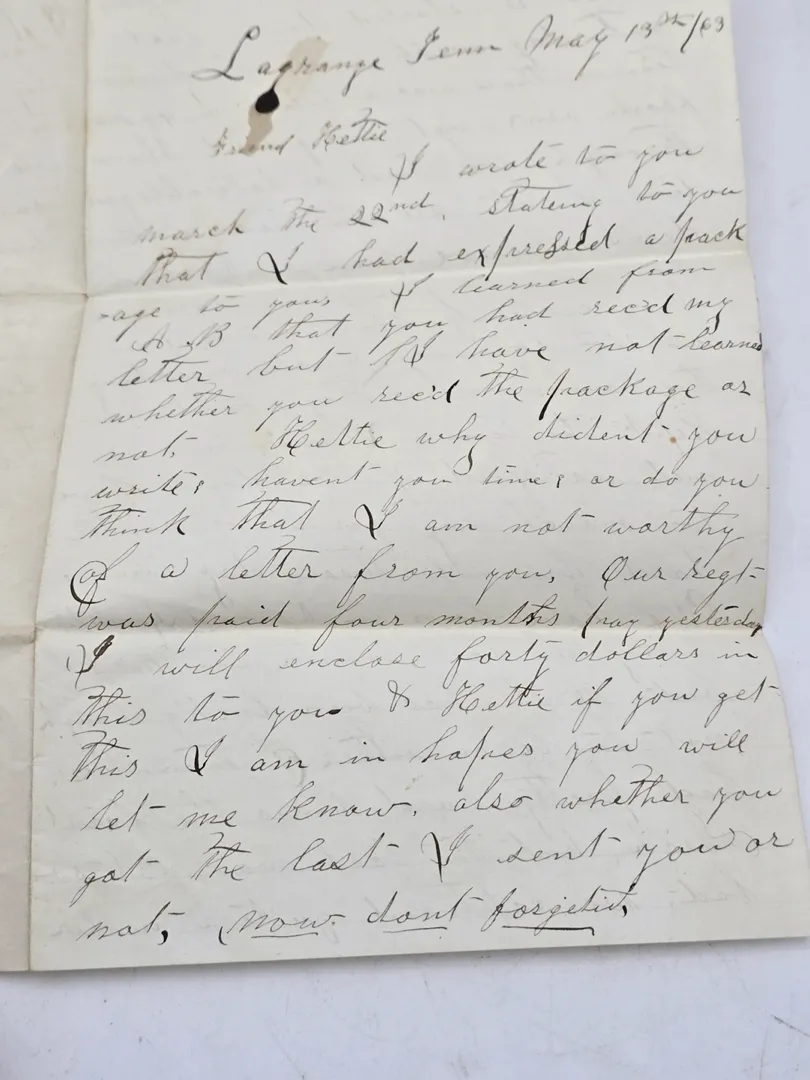 Lagrange Tenn May 13th/63
Friend Hettie
I wrote to you
march the 22nd, stateing to you
that I had expressed a pack
-age to you, I learned from
A. B that you had rec'd my
letter but I have not learned
whether you rec'd the package or
not, Hettie why dident you
write; havent you time; or do you
think that I am not worthy
of a letter from you. Our regt-
was paid four months pay yesterday
I will enclose forty dollars in
this to you & Hettie if you get
this I am in hopes you will
let me know. also whether you
got the last I sent you or
not, now dont forgetit,